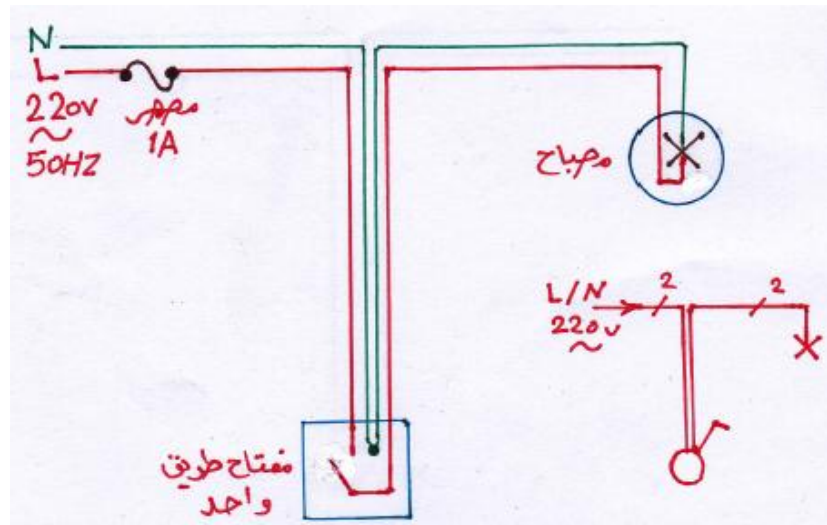 N
L
220V
~
50HZ
مصهر
1A
مصباح
L/N
220v
~
2
2
مفتاح طريق
واحد